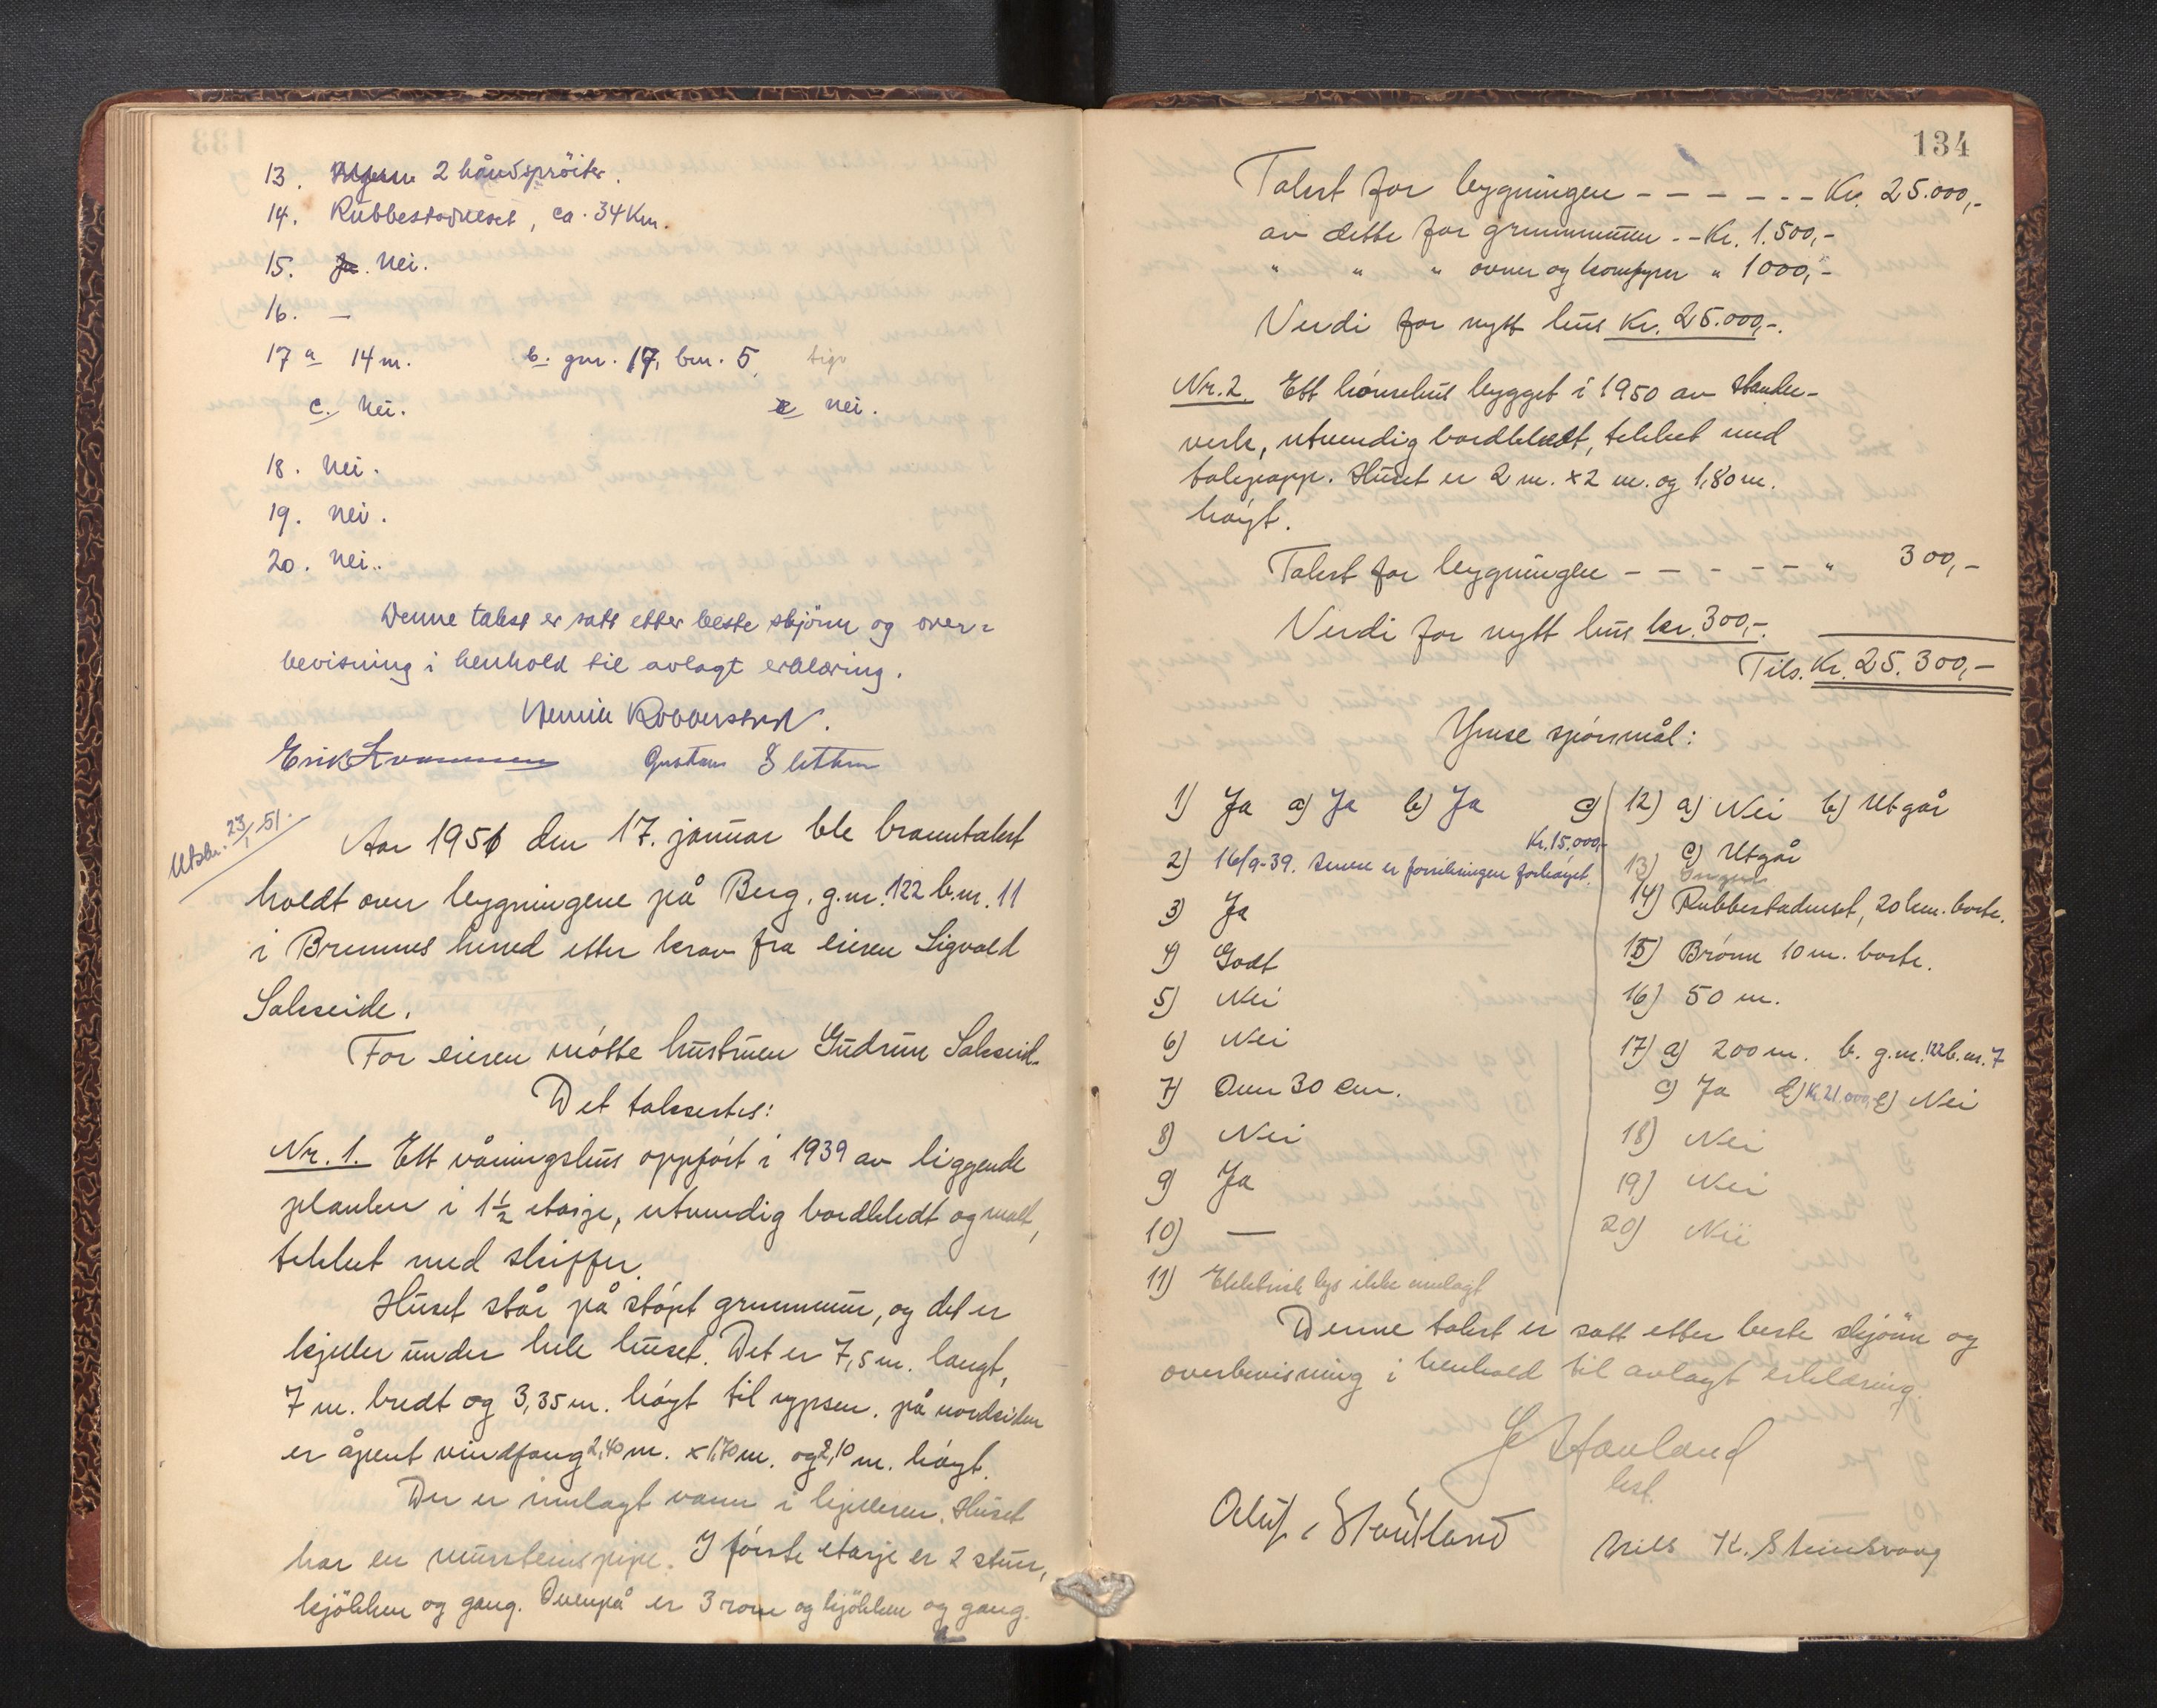 13. 2 håndspröiter.
14. Rubbestadneset, ca. 34 Km.
15. Ja. Nei.
16. —
17 a 14 m. b. gnr. 17, bnr. 5
c. Nei. e Nei.
18. Nei.
19. Nei.
20. Nei.
Denne takst er satt etter beste skjönn og over-
bevisning i henhold til avlagt erklæring.
Henrik Robberstad.
Erik Gustav Sletten
Utskr. 23/1 51.
Aar 1951 den 17. januar ble branntakst
holdt over bygningene på Berg, g.nr. 122 b.nr. 11
i Bremnes herred etter krav fra eieren Sigvald
Salseide.
For eieren møtte hustruen Gudrun Salseid.
Det taksertes:
Nr. 1. Ett våningshus oppført i 1939 av liggende
planker i 1½ etasje, utvendig bordkledt og malt,
tekket med skiffer.
Huset står på støpt grunnmur, og det er
kjeller under hele huset. Det er 7,5 m. langt,
7 m. bredt og 3,35 m. høgt til rypsen. på nordsiden
er åpent vindfang 2,40 m. x 1,70 m. og 2,10 m. høgt.
Der er innlagt vann i kjelleren. Huset
har en mursteinspipe. I første etasje er 2 stuer,
kjökken og gang. Ovenpå er 3 rom og kjökken og gang.
134
Takst for bygningen - - - - - - Kr. 25.000,-
av dette for grunnmuren - - Kr. 1.500,-
" " " ovner og komfyrer " 1000,-
Verdi for nytt hus Kr. 25.000,-.
Nr. 2. Ett hønsehus bygget i 1950 av stender-
verk, utvendig bordkledt, tekket med
takpapp. Huset er 2 m. x 2 m. og 1,80 m.
høgt.
Takst for bygningen - - - - - " 300,-
Verdi for nytt hus kr. 300,-.
Tils. Kr. 25.300,-
Ymse spørsmål:
1) Ja a) Ja b) Ja c) Kr. 15.000,-
2) 16/9-39. Senere er forsikringen forhøyet.
3) Ja
4) Godt
5) Nei
6) Nei
7) Over 30 cm.
8) Nei
9) Ja
10) —
11) Elektrisk lys ikke innlagt
12) a) Nei b) Utgår
c) Utgår
13) Ingen
14) Rubbestadneset, 20 km. borte.
15) Brønn 10 m. borte.
16) 50 m.
17) a) 200 m. b. g.nr. 122 b.nr. 7
c) Ja d) Kr. 21.000,- e) Nei
18) Nei
19) Nei
20) Nei
Denne takst er satt etter beste skjönn og
overbevisning i henhold til avlagt erklæring.
Havland
lest.
Oluf Stautland Nils K. Steinsvaag